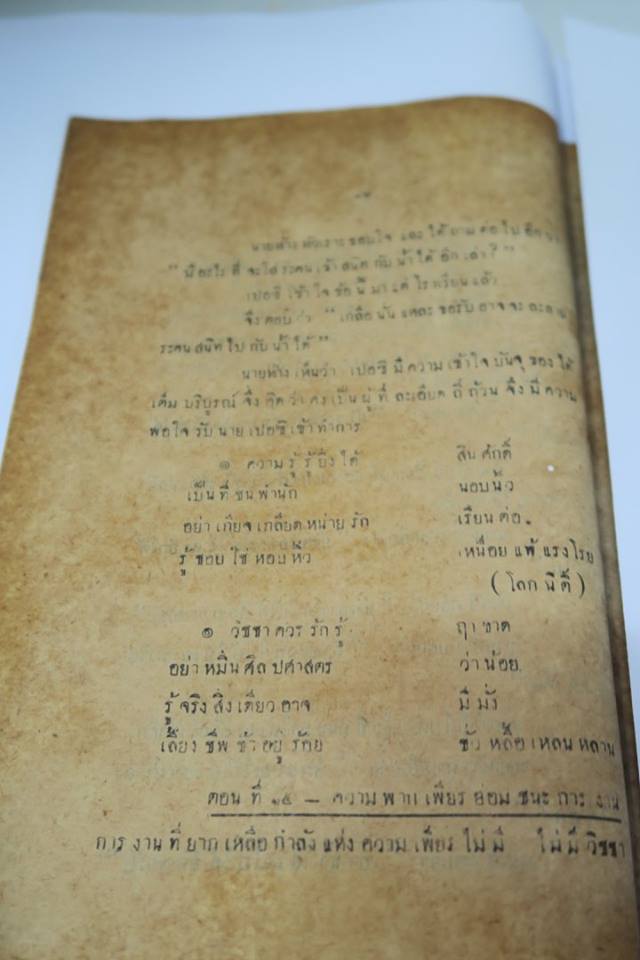 นายห้าง หัวเราะ ชอบใจ และ ได้ถาม ต่อ ไป อีก
" มีอะไร ที่ จะใส่ ระคน เข้า สนิท กับ น้ำ ได้ อีก เล่า ? "
เปอซี เข้า ใจ ข้อ นี้ มา แต่ โรงเรียน แล้ว
จึง ตอบ ว่า " เกลือ นั้น แหละ ขอรับ อาจ จะ
ระคน สนิท ไป กับ น้ำ ได้ "
นายห้าง เห็นว่า เปอซี มี ความ เข้าใจ บันจุ ของ ได้
เต็ม บริบูรณ์ จึ่ง คิด ว่า คง เป็น ผู้ ที่ ละเอียด ถี่ ถ้วน จึ่ง มี ความ
พอใจ รับ นาย เปอซี เข้า ทำการ
๑ ความ รู้ รู้ ยิ่ง ได้ สิน ศักดิ์
เป็น ที่ ชน พำนัก นอบ นิ้ว
อย่า เกียจ เกลียด หน่าย รัก เรียน ต่อ
รู้ ชอบ ใช่ หอบ หิ้ว เหนื่อย แพ้ แรง โรย
( โลก นิติ์ )
๑ วิชชา ควร รัก รู้ ฤา ขาด
อย่า หมิ่น ศิล ปศาสตร ว่า น้อย
รู้ จริง สิ่ง เดียว อาจ มี มั่ง
เลี้ยง ชีพ ช้า อยู่ ร้อย ชั่ว เหลือ เหลน หลาน
ตอน ที่ ๑๕ – ความ พาก เพียร ย่อม ชนะ การ งาน
การ งาน ที่ ยาก เหลือ กำลัง แห่ง ความ เพียร ไม่ มี ไม่ มี วิชชา